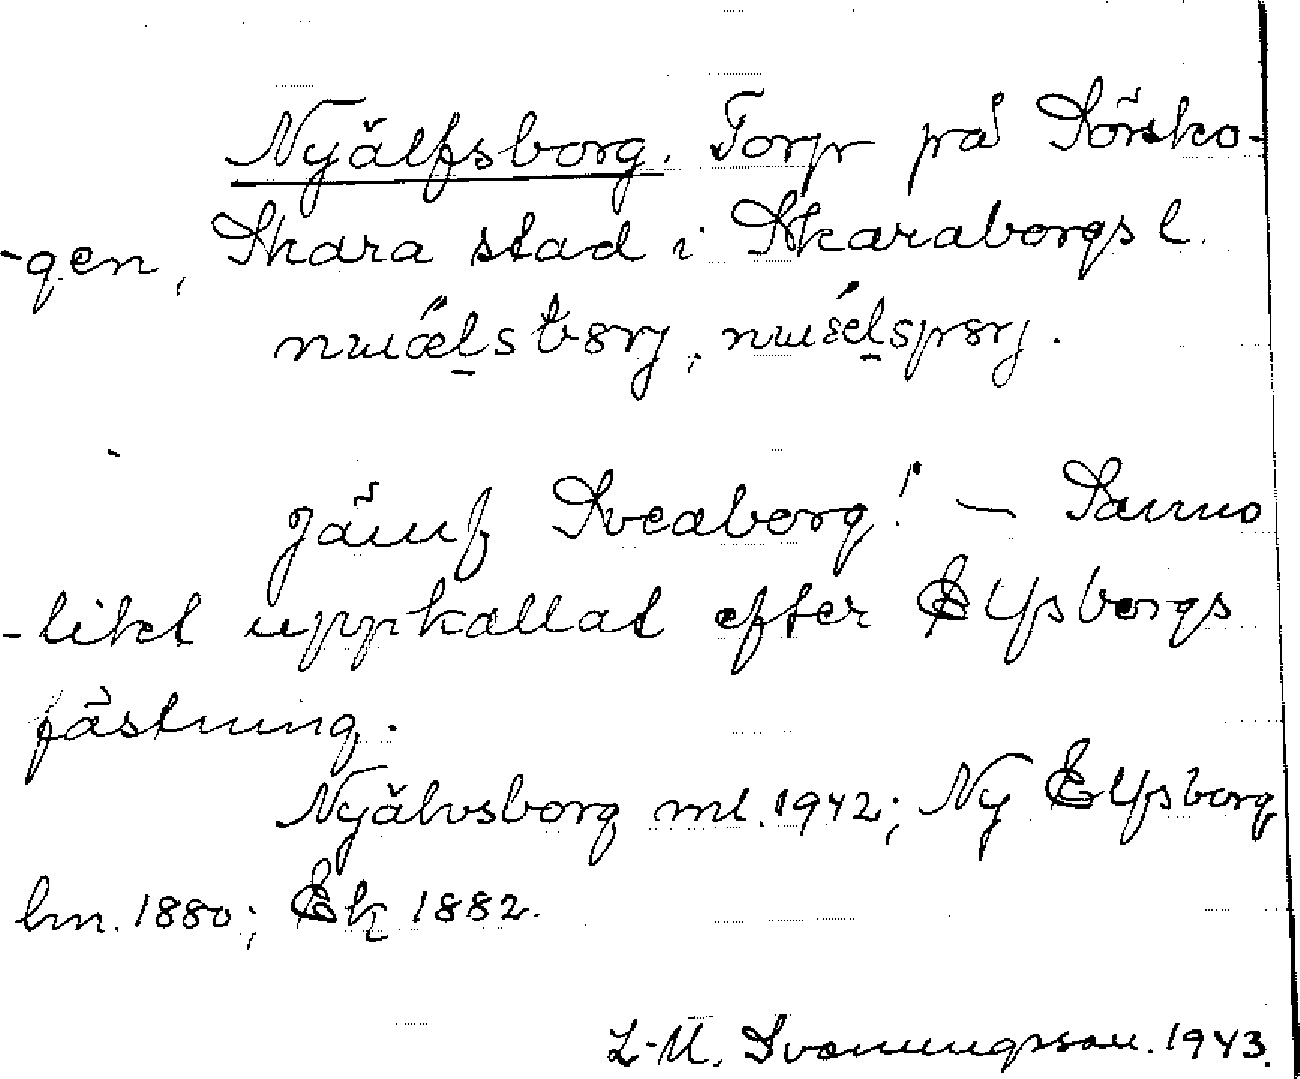 Nyälfsborg. Torp på Sörsko-
-gen, Skara stad i Skaraborgs l.
jämf Sveaborg! — Sanno
-likt uppkallat efter Elfsborgs
fästning.
Nyälvsborg ml. 1942; Ny Elfsborg
hm. 1880; Ek 1882.
L-M. Svenungsson. 1943.